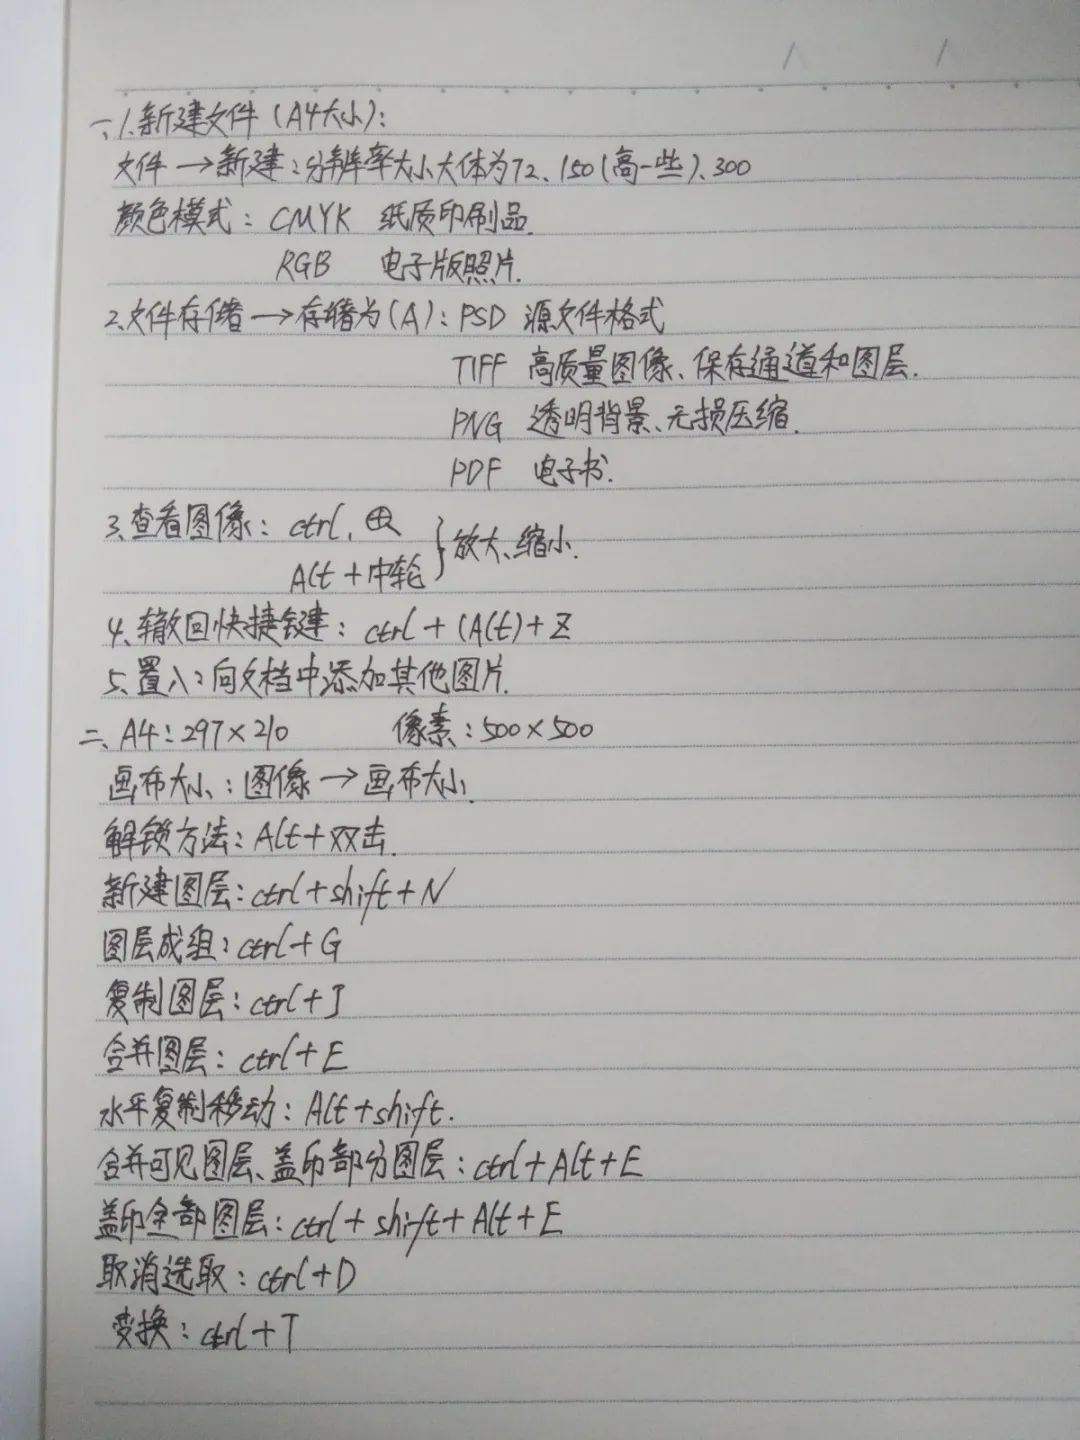 一、1.新建文件(A4大小):
文件→新建:分辨率大小大体为72、150(高一些)、300
颜色模式: CMYK 纸质印刷品.
RGB 电子版照片.
2、文件存储→存储为(A): PSD 源文件格式
TIFF 高质量图像、保存通道和图层.
PNG 透明背景、无损压缩.
PDF 电子书.
3、查看图像: ctrl, ⊕
Alt+中轮 }放大、缩小.
4、撤回快捷键: ctrl+(Alt)+Z
5、置入:向文档中添加其他图片.
二、A4:297×210 像素:500×500
画布大小:图像→画布大小.
解锁方法:Alt+双击.
新建图层:ctrl+shift+N
图层成组:ctrl+G
复制图层:ctrl+J
合并图层:ctrl+E
水平复制移动:Alt+shift.
合并可见图层、盖印部分图层:ctrl+Alt+E
盖印全部图层:ctrl+shift+Alt+E
取消选取:ctrl+D
变换:ctrl+T